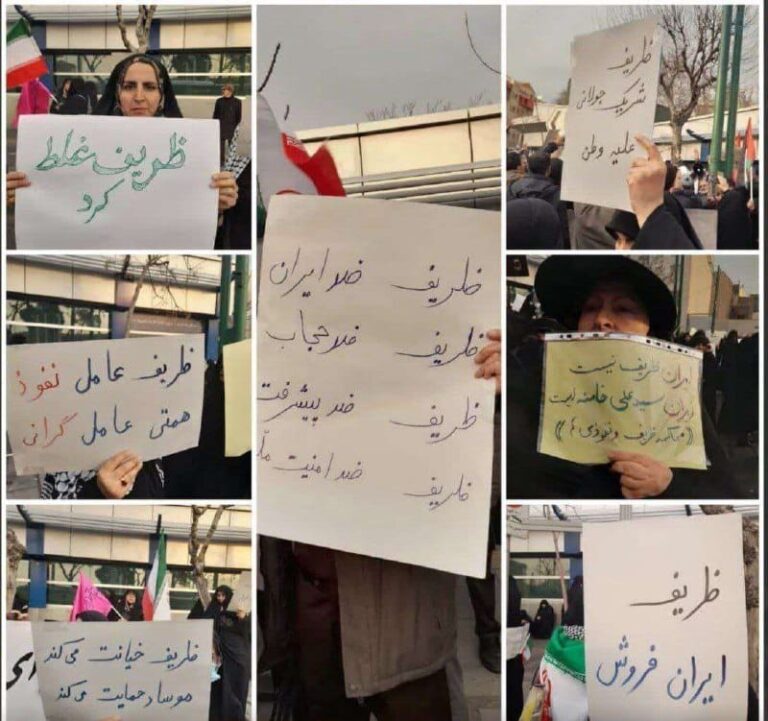 ظریف غلط
کرد
ظریف
شریک جولانی
علیه وطن
ظریف ضد ایران
ظریف ضد حجاب
ظریف ضد پیشرفت
ظریف ضد امنیت
ظریف عامل نفوذ
همتی عامل گرانی
ایران ظریف نیست
ایران سیدعلی خامنه
ظریف و نفوذی
ظریف خیانت می‌کند
موساد حمایت می‌کند
ظریف
ایران فروش